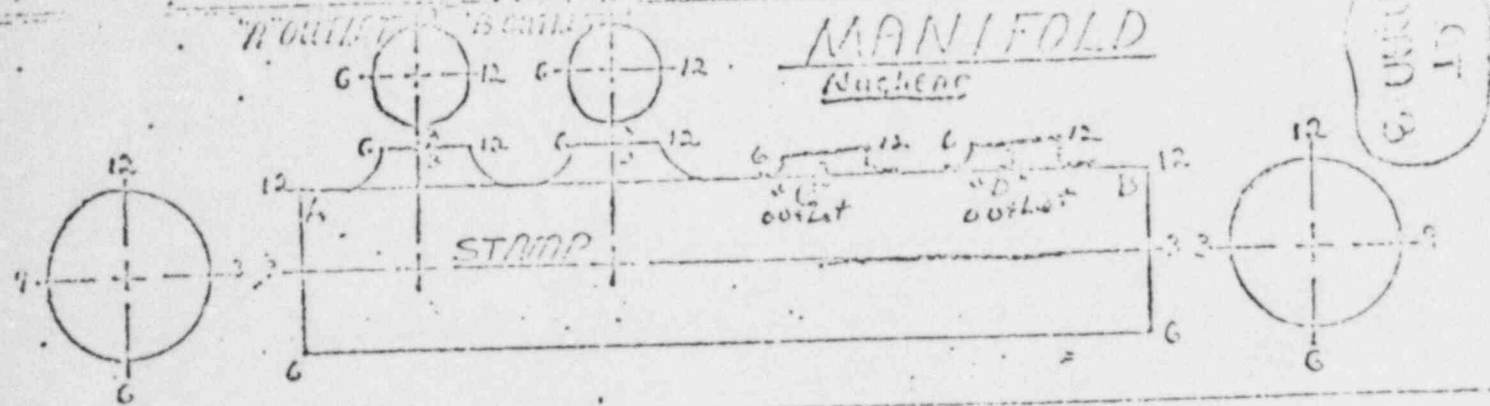 "A" OUTLET "B" OUTLET
MANIFOLD
Nuclear
6 12 6 12
6 12 6 12 6 12 6 12
12 12 12 12
A "C" "D" B
outlet outlet
STAMP
9 3 3 3 3 9
6 6 6 6